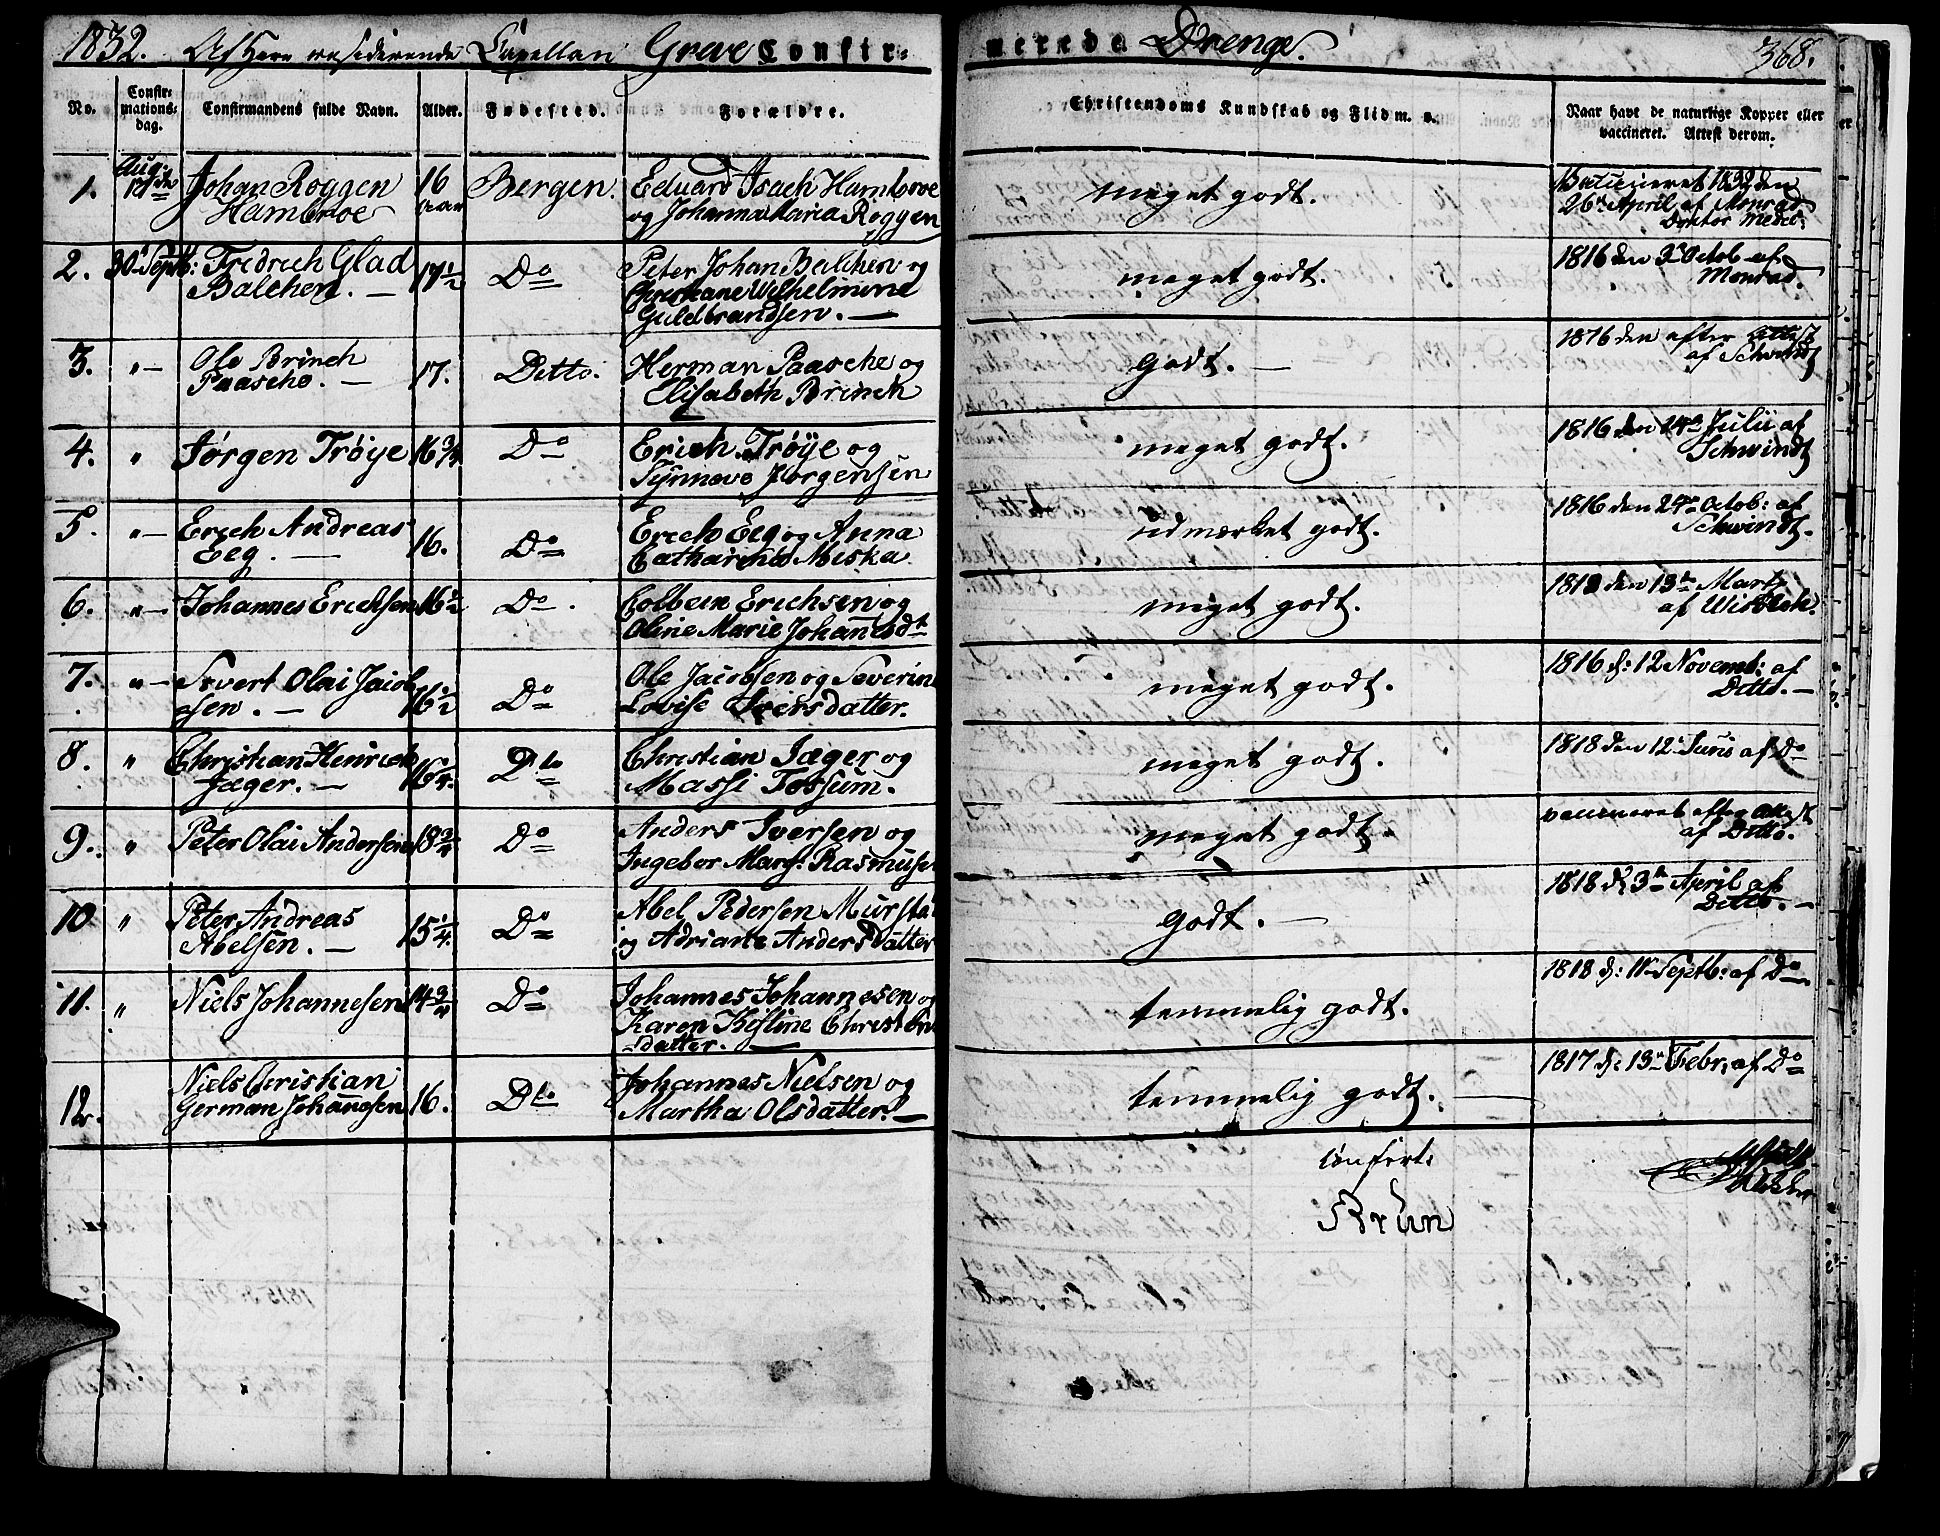 1832. Af Herr residerende Capellan Greve Confir-
merede Drenge. 368.
No. Confir- Confirmandens fulde Navn. Alder. Fødested. Forældre. Christendoms Kundskab og Flid m. v. Naar havt de naturlige Kopper eller
mations- vaccineret. Attest derom.
dag.
1. Aug: Johan Roggen 16 Bergen. Eduard Isach Hambroe meget godt. Vaccineret 1832 den
Hambroe aar og Johanna Maria Roggen 26 April af Monrad
Doktor Medic:
2. 30 Septb: Fredrich Glad 17½ Do Peter Johan Balchen og meget godt. 1816 den 3 Octob af
Balchen. — Christiane Wilhelmine Monrad.
Guldbrandsen. —
3. "— Ole Brinch 17. Ditto. Herman Paasche og godt. — 1816 den after Attest
Paasche. — Elisabeth Brinch af Schwindt
4. " Jørgen Trøye 16¾ Do Erich Trøye og meget godt. 1816 den 24de Julii af
Synneve Jørgensen Schwindt
5. "— Erich Andreas 16. Do Erich Eeg og Anna udmærket godt. 1816 den 24de Octob: af
Eeg. — Catharina Miska Schwindt.
6. "— Johannes Erichsen 16½ Do. Colbein Erichsen og meget godt. 1818 den 13de Marts
Oline Marie Johannesdt af
7. "— Sivert Olai Jacob 16½ Do Ole Jacobsen og Severine meget godt. 1816 d: 12 Novemb: af
sen. — Lovise Iversdatter. Ditto. —
8. " Christian Henrich Dto Christian Jæger og meget godt. 1818 den 12 Junii af Do
Jæger. — Massi Tossum.
9. " Peter Olai Andersen 18¾ Do Anders Iversen og meget godt. vaccineret efter Attest
Ingebor Marg: Rasmusen af Ditto.
10 " Peter Andreas 15¼ Do Abel Pedersen godt. — 1818 d: 3die April af
Abelsen. — og Adriane Andersdatter Ditto. —
11. " Niels Johannesen 14¾ Do Johannes Johannesen og temmelig godt. 1818 d: 11 Septb: af Do
Karen Kistine
datter. —
12. Niels Christian 16. Dto Johannes Nielsen og temmelig godt. 1817 d: 13 Febr, af Do
German Johannesen Martha Olsdatter. —
confert:
Krun